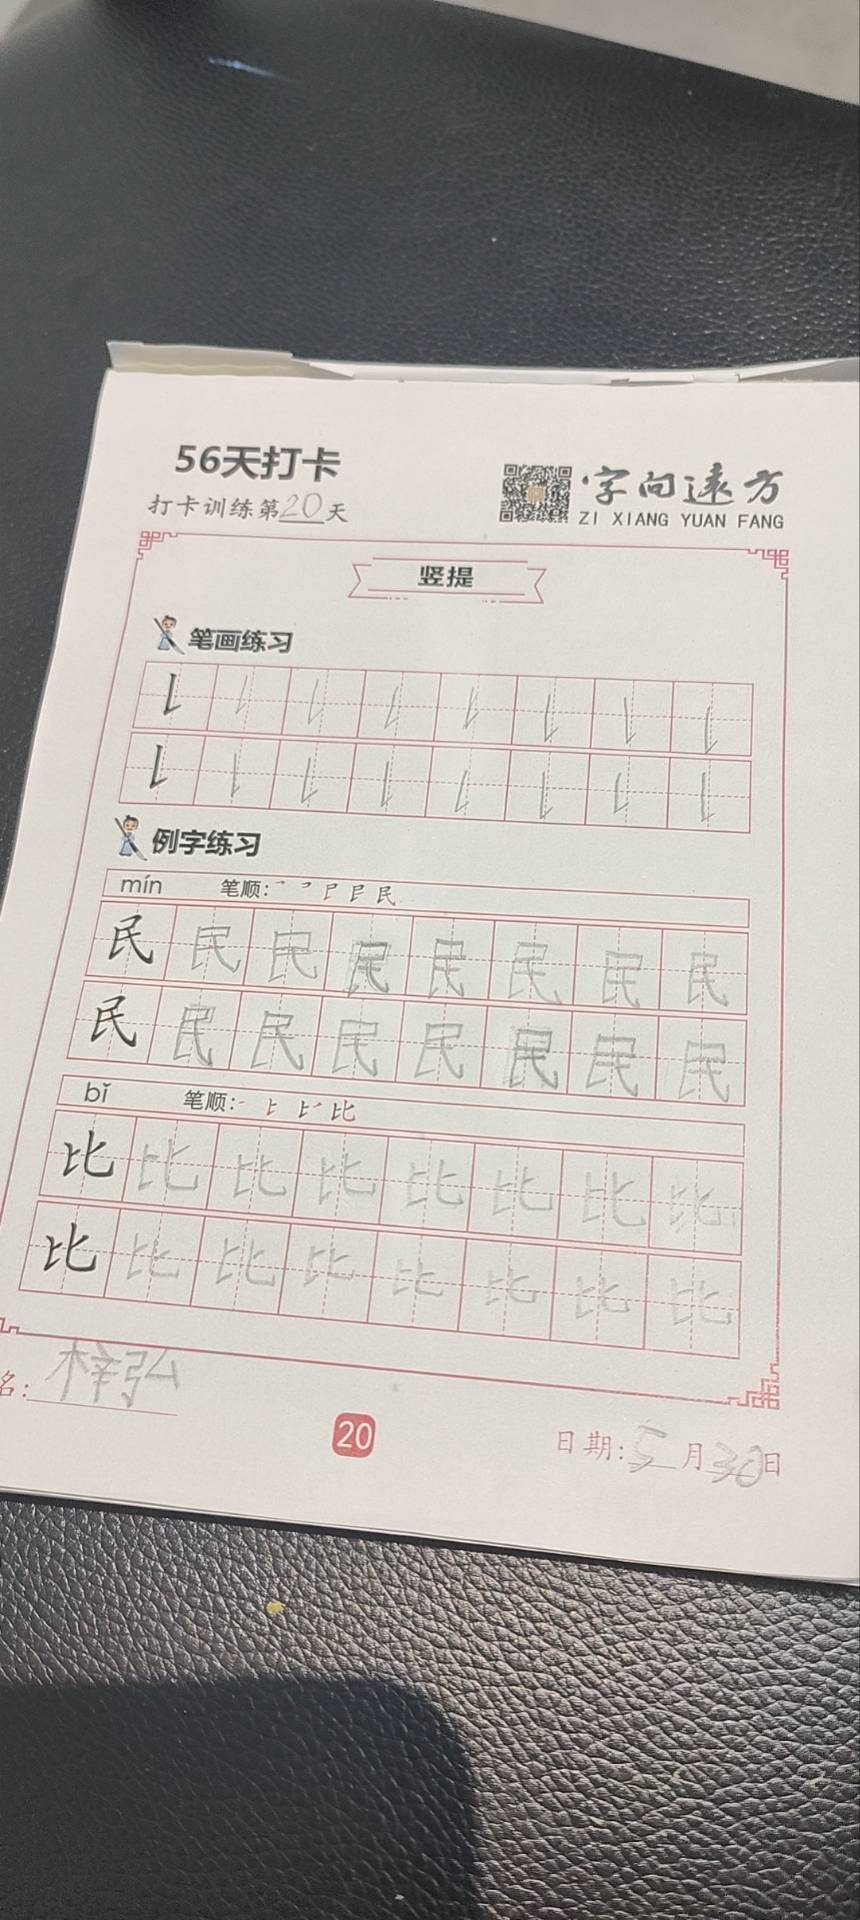 56天打卡
打卡训练第20天
字向远方
ZI XIANG YUAN FANG
竖提
笔画练习
例字练习
mín 笔顺:
民 民 民 民 民 民 民 民
民 民 民 民 民 民 民 民
bǐ 笔顺:
比 比 比 比 比 比 比 比
比 比 比 比 比 比 比 比
名: 梓弘
20
日期:5月30日